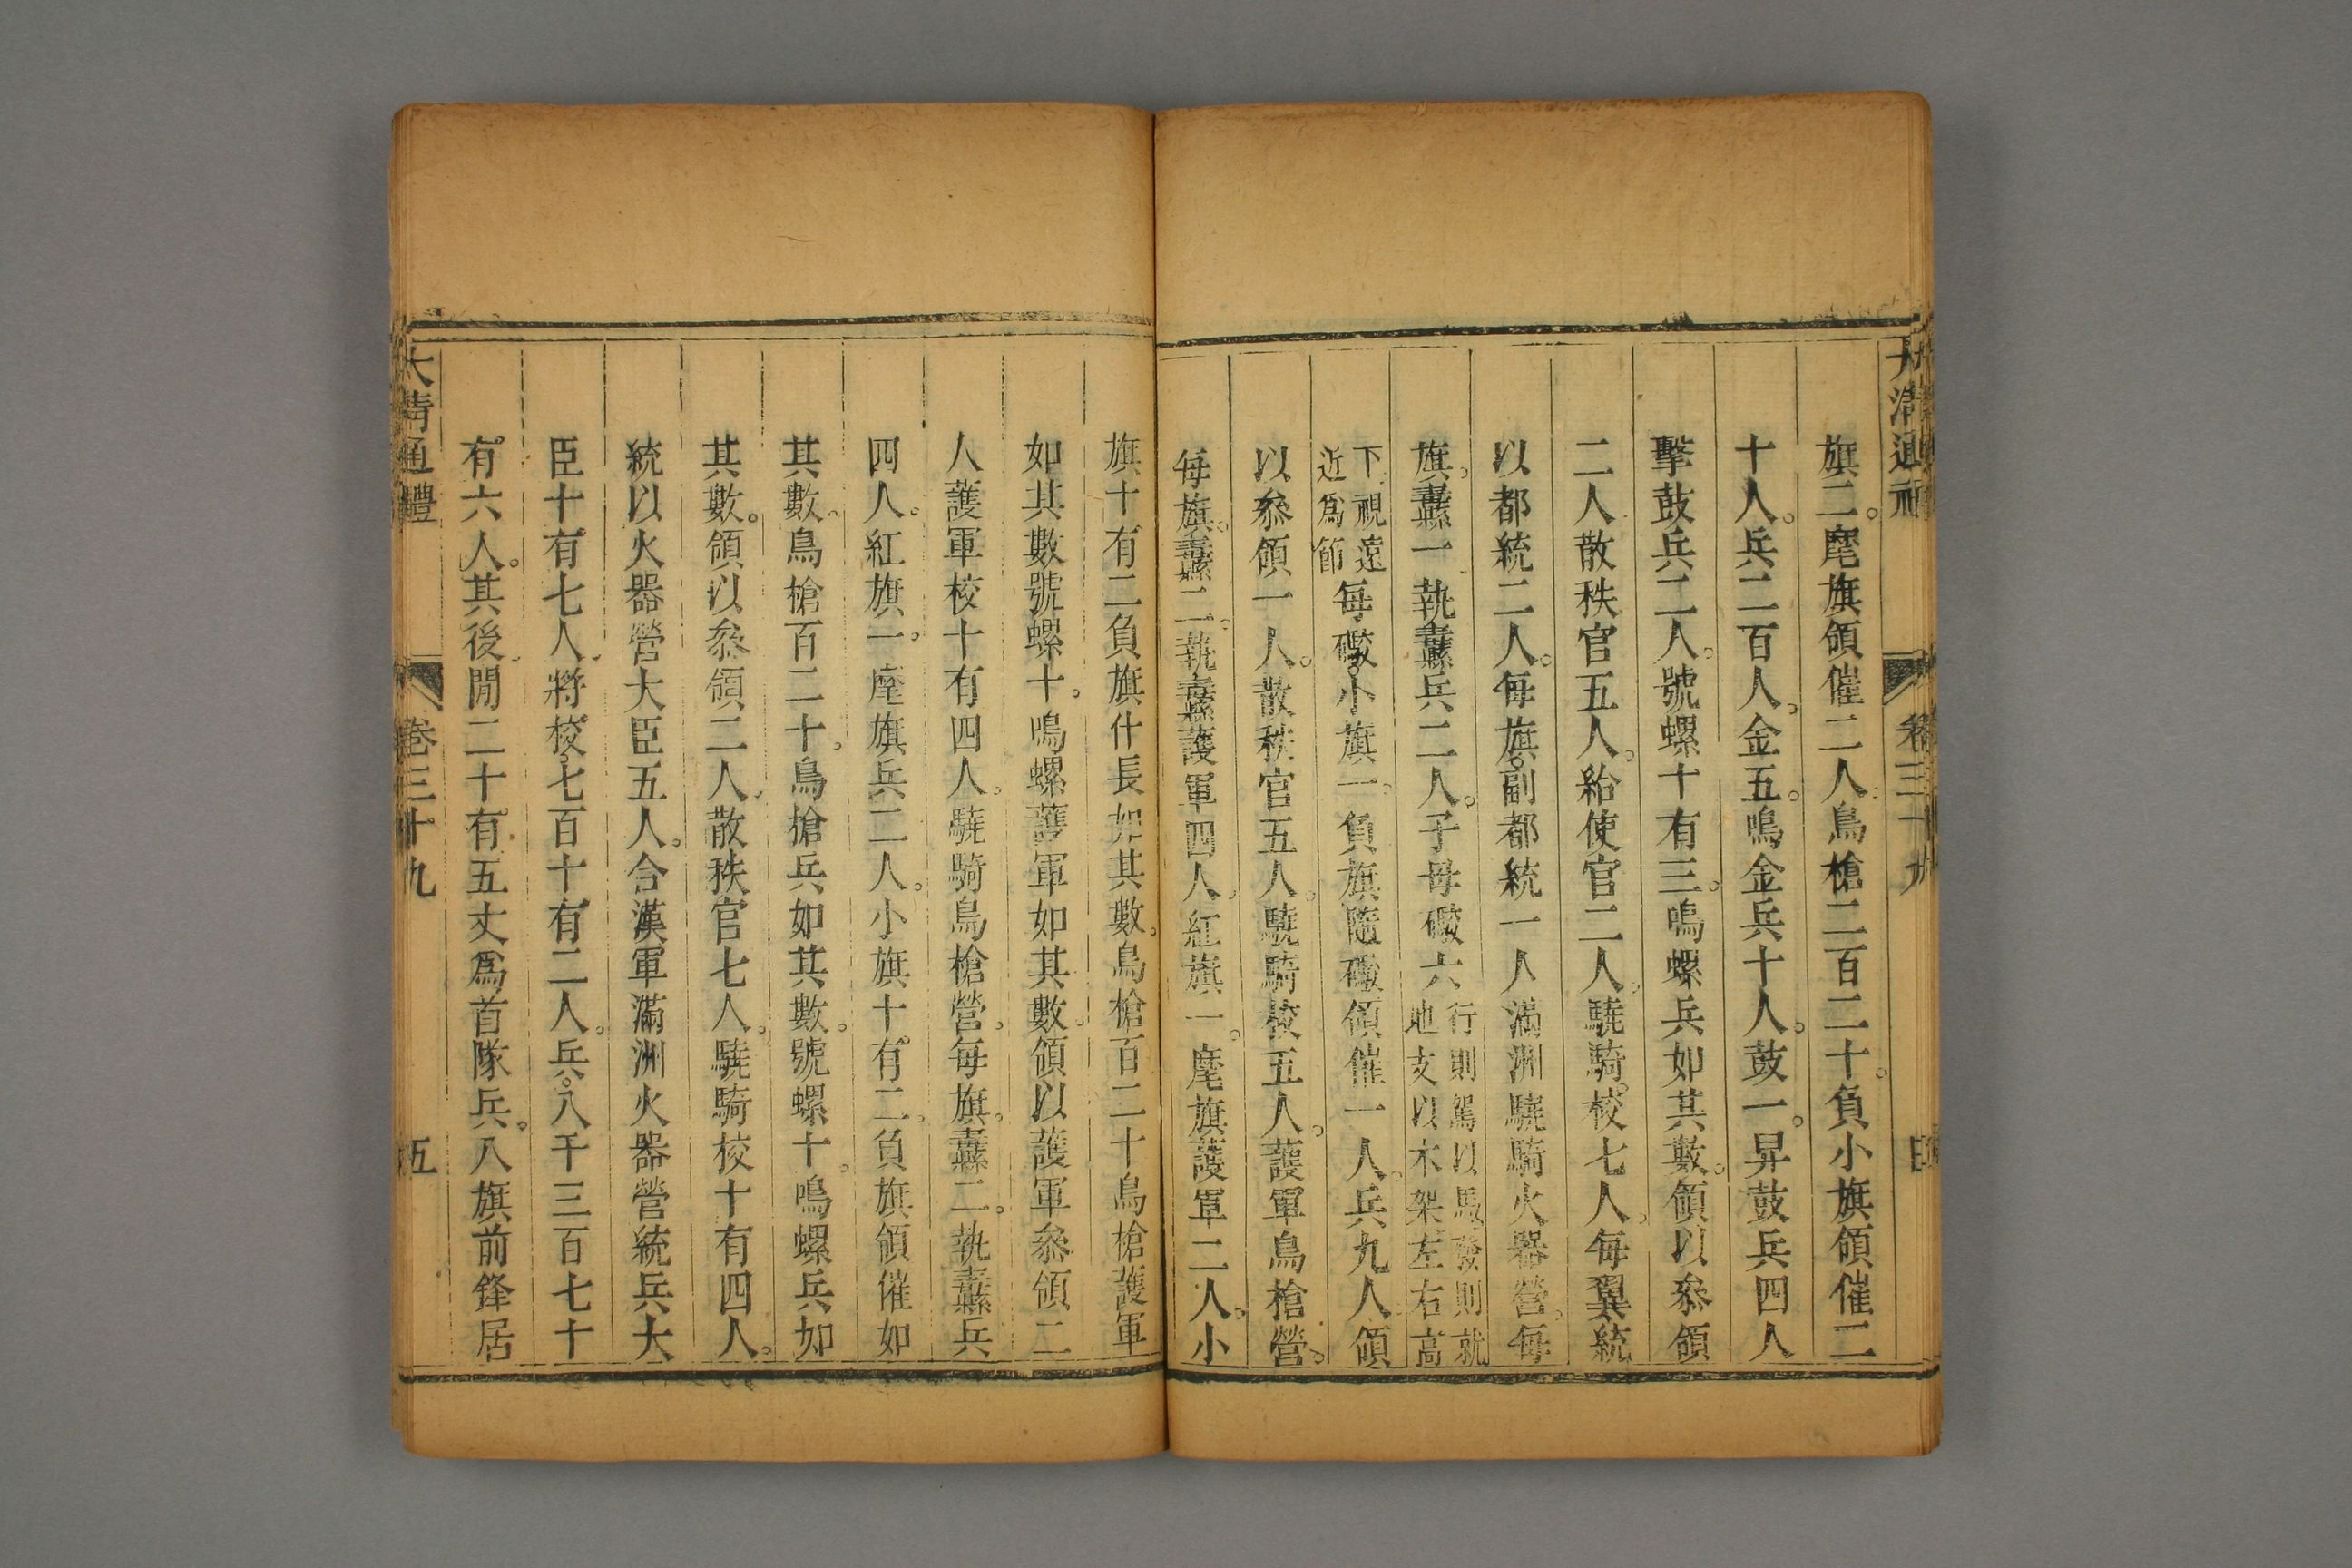 大清通禮 卷三十九 四
旗二。麾旗領催二人。鳥槍二百二十。負小旗領催二
十人。兵二百人。金五。鳴金兵十人。鼓一。舁鼓兵四人
擊鼓兵二人。號螺十有三。鳴螺兵如其數。領以叅領
二人散秩官五人。給使官二人。驍騎校七人。每翼統
以都統二人。每旗。副都統一人滿洲驍騎火器營。每
旗。纛一。執纛兵二人。子母礮六行則駕以馬。發則就
地支以木架。左右高
下。視遠
近爲節每礮。小旗一。負旗隨礮領催一人。兵九人。領
以叅領一人。散秩官五人。驍騎校五人。護軍鳥槍營。
每旗。纛二。執纛護軍四人。紅旗一。麾旗護軍二人。小
旗十有二負旗什長如其數。鳥槍百二十鳥槍護軍
如其數號螺十。鳴螺護軍如其數。領以護軍叅領二
人護軍校十有四人。驍騎鳥槍營。每旗。纛二。執纛兵
四人。紅旗一。麾旗兵二人。小旗十有二。負旗領催如
其數。鳥槍百二十。鳥槍兵如其數。號螺十。鳴螺兵如
其數。領以叅領二人。散秩官七人。驍騎校十有四人。
統以火器營大臣五人。合漢軍滿洲火器營統兵大
臣十有七人。將校。七百十有二人。兵。八千三百七十
有六人。其後閒二十有五丈爲首隊兵。八旗前鋒居
大清通禮 卷三十九 五